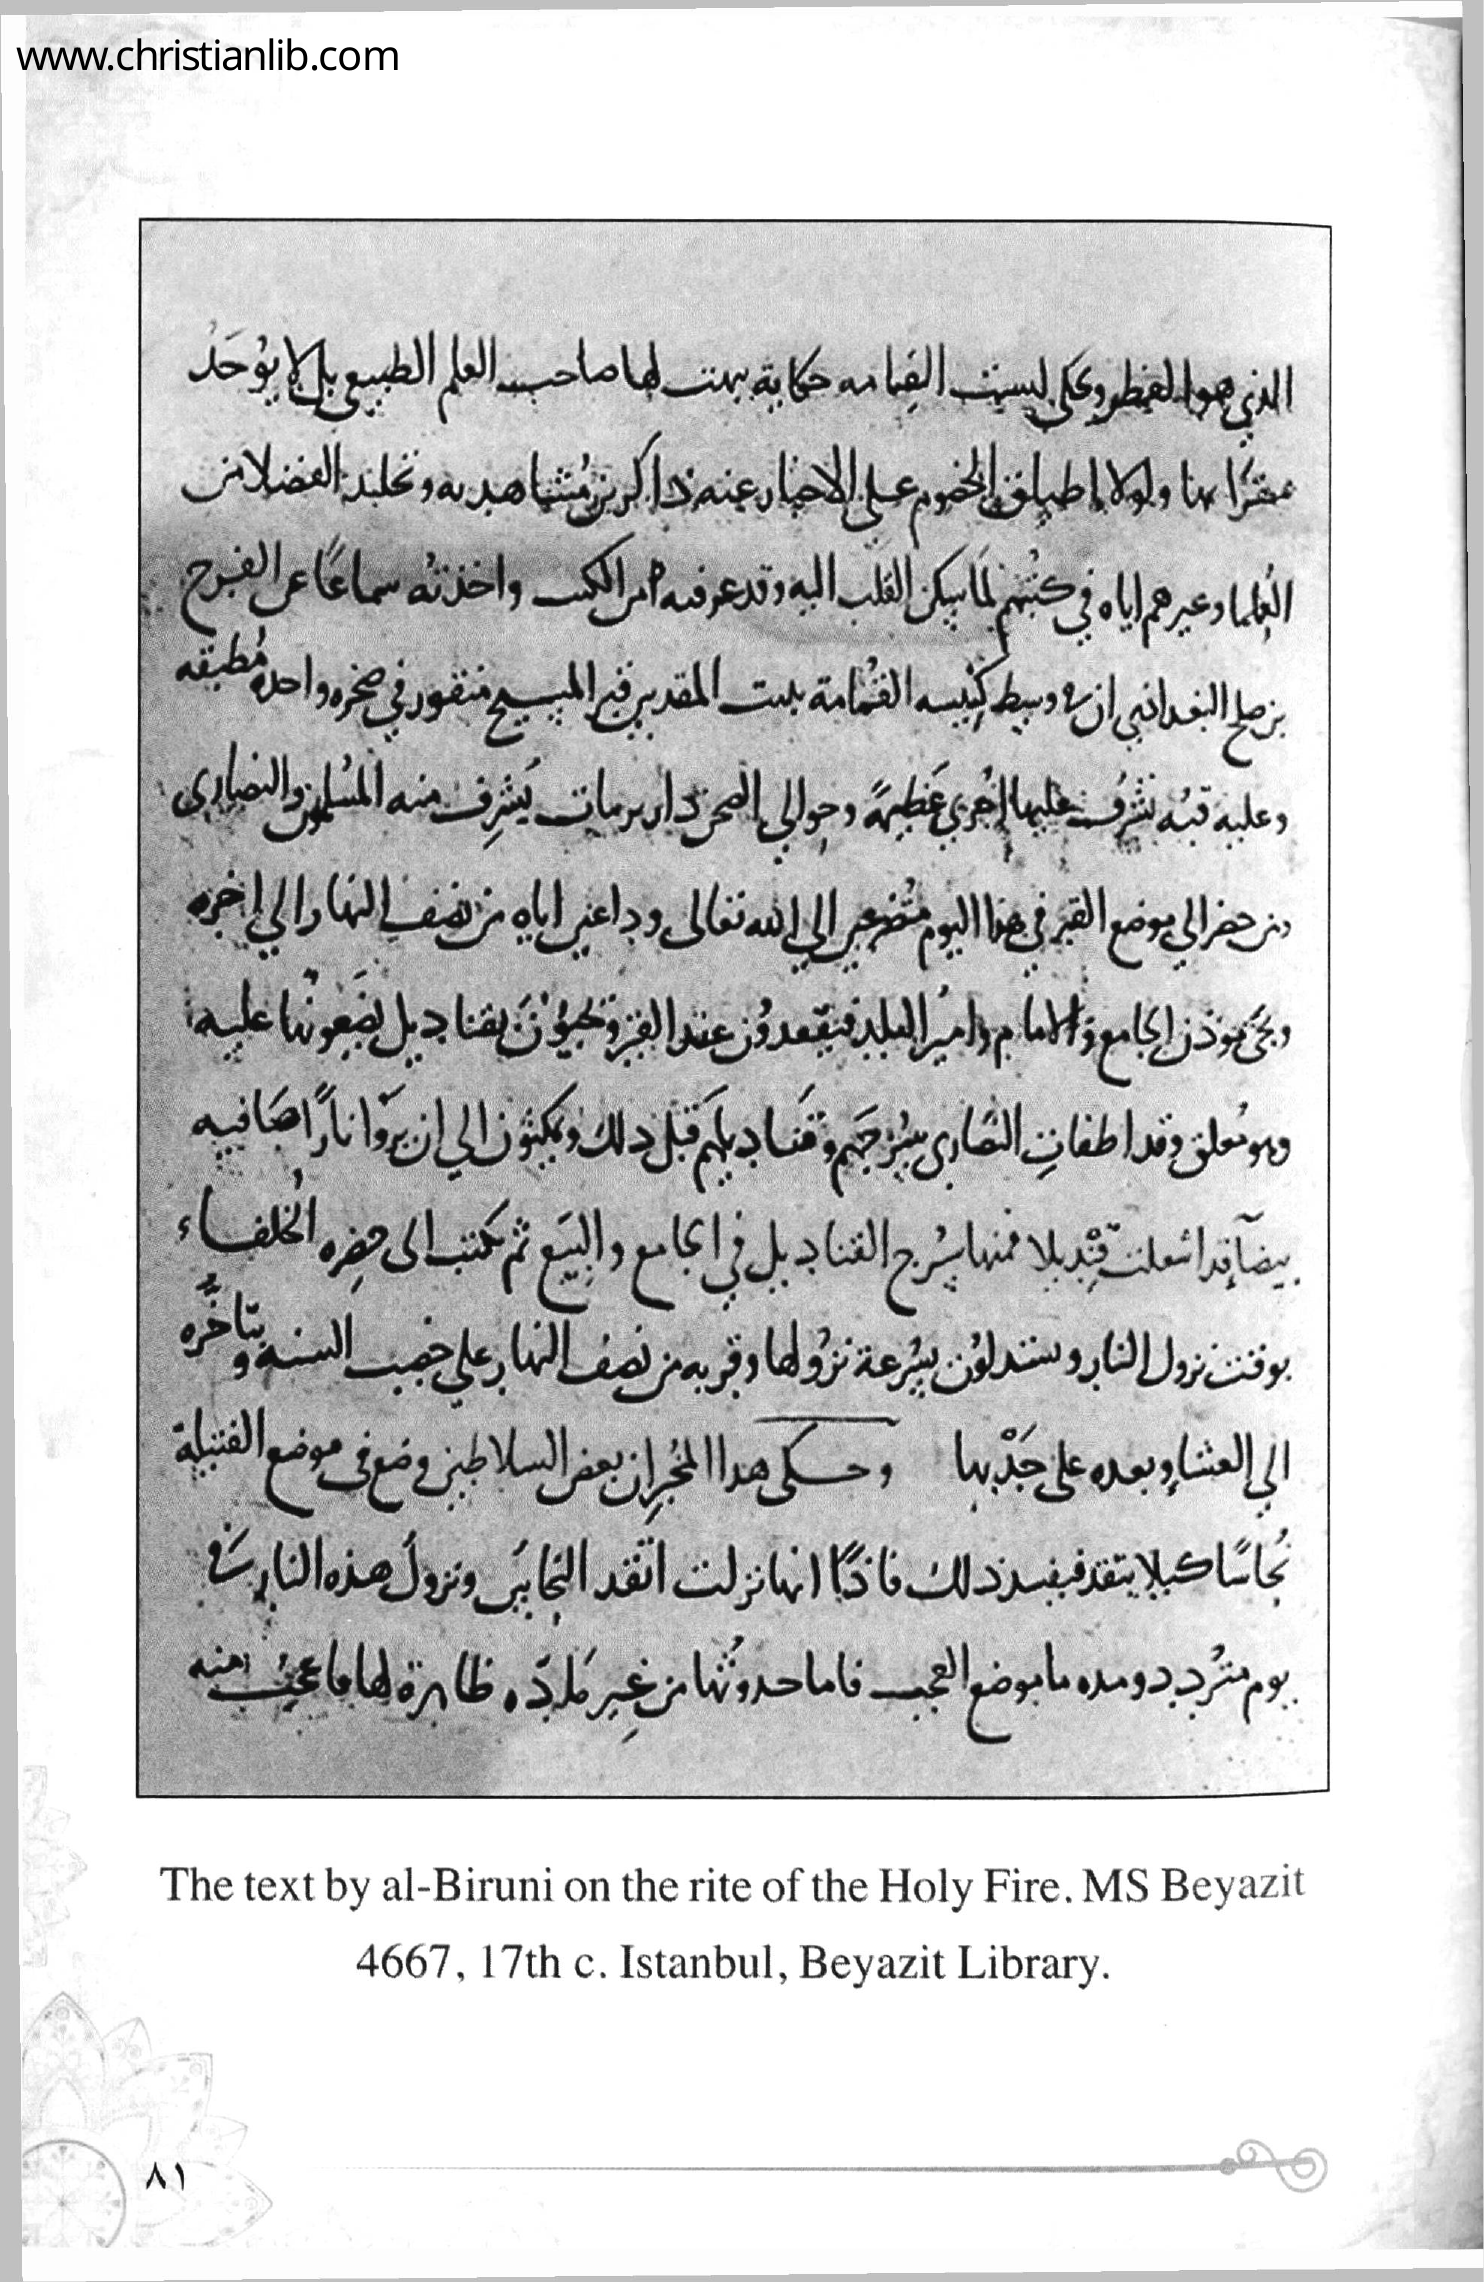 www.christianlib.com
الذي هو الفطر ويحكى لسبت القيامه حكاية يبهت لها صاحب العلم الطبيعي بل لا يوُخَذ
مقرًا بها ولولا إطباق الخصوم على الاخبار عنه ذاكرين مُشاهدته وتخليد الفضلا من
العُلما وغيرهم اياه في كتبهم لما سكن القلب اليه وقد عرفته من الكتب واخذته سماعًا عن الفرج
بن صلح البغدادي ان في وسط كنيسه القُمامة ببيت المقدس قبر المسيح منقور في صخره واحده مُطبقه
وعليه قبه تشرُف عليها اخرى عَظيمةً وحوالي الصحن دار برمات يَشرِف منه المُسلمون والنصارى
من حضر الي موضع القبر في هذا اليوم متضرعين الي الله تعالى وداعين اياه من نصف النهار الي اخره
ويجي موذن الجامع والامام وامير البلد فيقعدون عند القبر ويجيؤن بقناديل يضَعونها عليه
وهو مُغلق وقد اطفات النصارى سُرجَهم وقناديلهم قبل ذلك ويمكثون الي ان يَروا نارًا صَافيه
بيضآ قد اشعلت قنديلا فمنها يسُرج القناديل في الجامع والبيَع ثم يكتب الى حضره الخلفاء
بوقت نزول النار ويستدلوُن بسُرعة نزُولها وقربه من نصف النهار على خصب السنه وبتاخُّره
الي العشا وبعده على جَدْبها وحكى هذا المخبر ان بعض السلاطين وضع في موضع الفتيلة
نُحاسًا كيلا يتقد فيفسد ذلك فاذا انها نزلت اتقد النحاس ونزول هذه النار في
يوم متردد ومده ما موضع العجب فاما حدوثها من غير مادّه ظاهرة لها فاعجب منه
The text by al-Biruni on the rite of the Holy Fire. MS Beyazit
4667, 17th c. Istanbul, Beyazit Library.
٨١